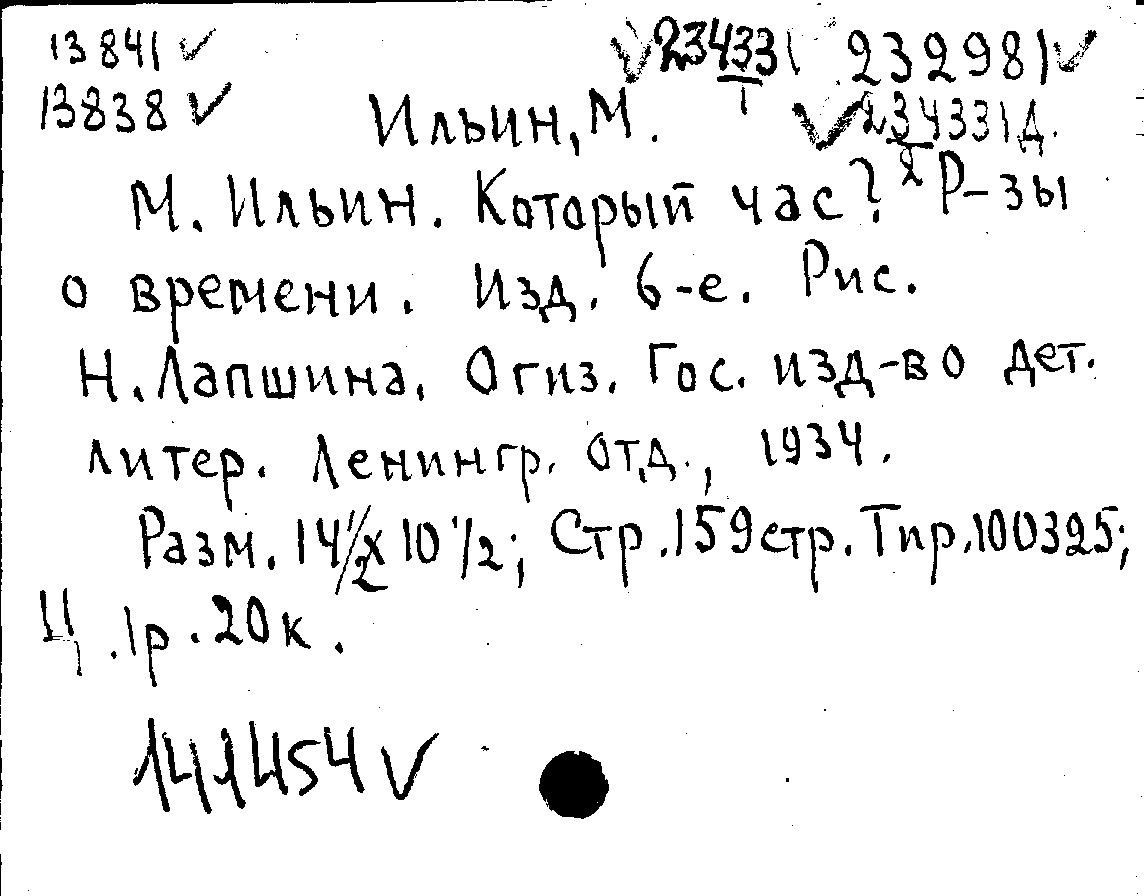 13841 ✓ ✓ 234331 232981 ✓
1
13838 ✓ Ильин, М. ✓ 234331д.
2
М. Ильин. Который час? Р-зы
о времени. Изд. 6-е. Рис.
Н. Лапшина. Огиз. Гос. изд-во дет.
литер. Ленингр. отд., 1934.
Разм. 14 1/2 х 10 1/2; Стр. 159 стр. Тир. 100325;
Ц. 1р. 20к.
141454 ✓